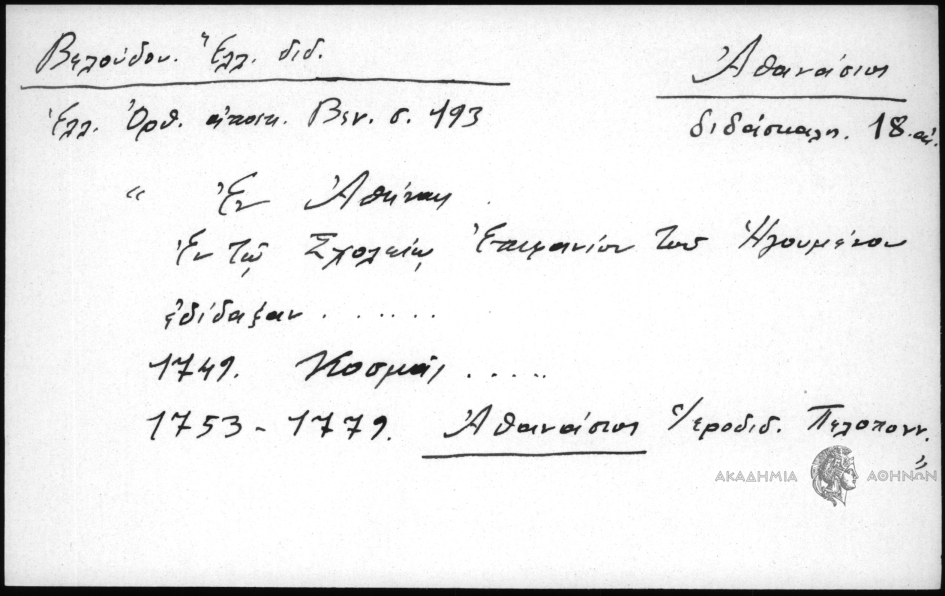 Βελούδου. Ἑλλ. διδ.
Ἀθανάσιος
Ἑλλ. Ὀρθ. ἀποικ. Βεν. σ. 193
διδάσκαλος. 18. αἰ.
“ Ἐν Ἀθήναις
Ἐν τῷ Σχολείῳ Ἐπιφανίου τοῦ Ἡγουμένου
ἐδίδαξαν ......
1749. Κοσμᾶς .....
1753 - 1779. Ἀθανάσιος Ἱεροδιδ. Πελοπονν. ”
ΑΚΑΔΗΜΙΑ ΑΘΗΝΩΝ